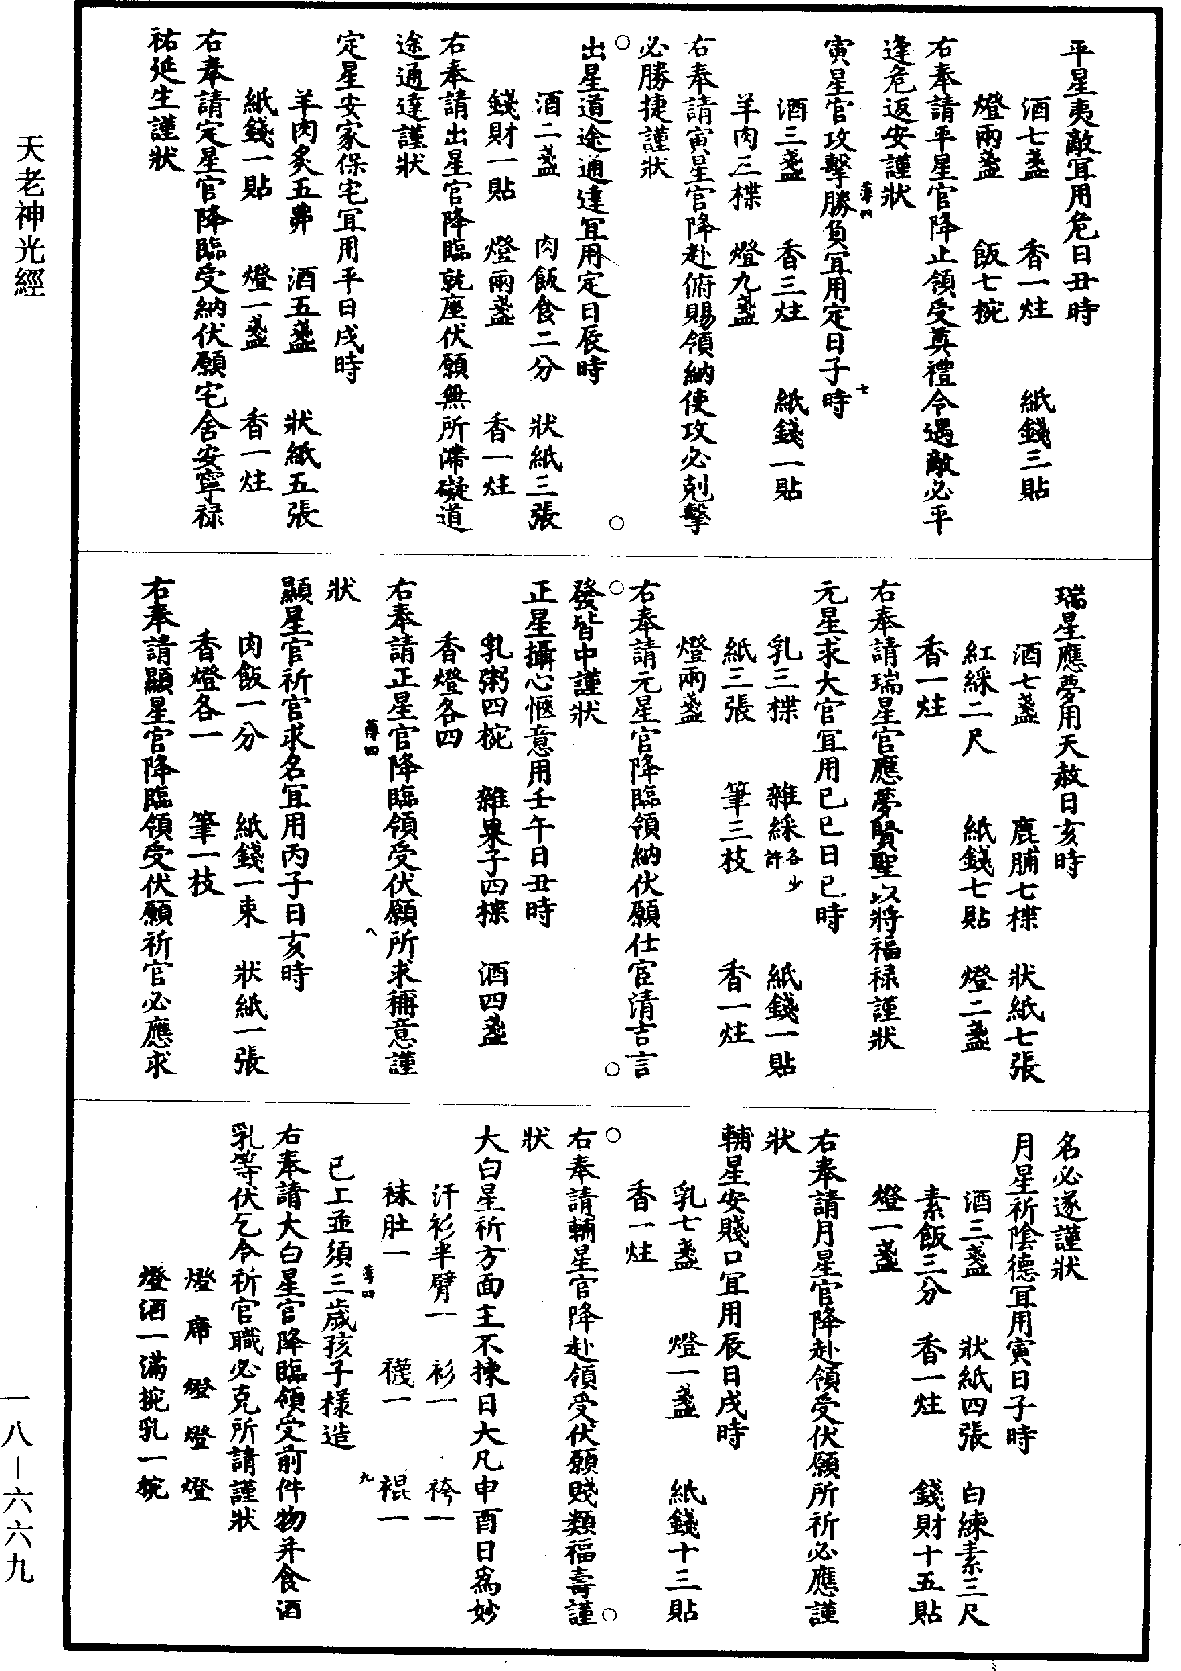 平星夷敵宜用危日丑時
酒七盞　香一炷　紙錢三貼
燈兩盞　飯七椀
右奉請平星官降止領受奠禮令遇敵必平
逢危返安謹狀
寅星官攻擊勝負宜用定日子時
酒三盞　香三炷　紙錢一貼
羊肉三楪　燈九盞
右奉請寅星官降赴俯賜領納使攻必剋擊
必勝捷謹狀
出星道途通達宜用定日辰時
酒二盞　肉飯食二分　狀紙三張
錢財一貼　燈兩盞　香一炷
右奉請出星官降臨就座伏願無所滯礙道
途通達謹狀
定星安家保宅宜用平日戌時
羊肉炙五弗　酒五盞　狀紙五張
紙錢一貼　燈一盞　香一炷
右奉請定星官降臨受納伏願宅舍安寧祿
祐延生謹狀
瑞星應夢用天赦日亥時
酒七盞　鹿脯七楪　狀紙七張
紅綵二尺　紙錢七貼　燈二盞
香一炷
右奉請瑞星官應夢賢聖以將福祿謹狀
元星求大官宜用已巳日巳時
乳三楪　雜綵各少許　紙錢一貼
紙三張　筆三枝　香一炷
燈兩盞
右奉請元星官降臨領納伏願仕宦清吉言
發皆中謹狀
正星攝心愜意用壬午日丑時
乳粥四椀　雜果子四楪　酒四盞
香燈各四
右奉請正星官降臨領受伏願所求稱意謹
狀
顯星官祈官求名宜用丙子日亥時
肉飯一分　紙錢一束　狀紙一張
香燈各一　筆一枝
右奉請顯星官降臨領受伏願祈官必應求
名必遂謹狀
月星祈陰德宜用寅日子時
酒三盞　狀紙四張　白練素三尺
素飯三分　香一炷　錢財十五貼
燈一盞
右奉請月星官降赴領受伏願所祈必應謹
狀
輔星安賤口宜用辰日戌時
乳七盞　燈一盞　紙錢十三貼
香一炷
右奉請輔星官降赴領受伏願賤類福壽謹
狀
大白星祈方面主不揀日大凡申酉日爲妙
汗衫半臂一　衫一　袴一
袜肚一　襪一　裩一
已上並須三歲孩子樣造
右奉請大白星官降臨領受前件物并食酒
乳等伏乞令祈官職必克所請謹狀
燈　席　燈　燈　燈
燈酒一滿椀乳一椀
天老神光經
一八—六六九